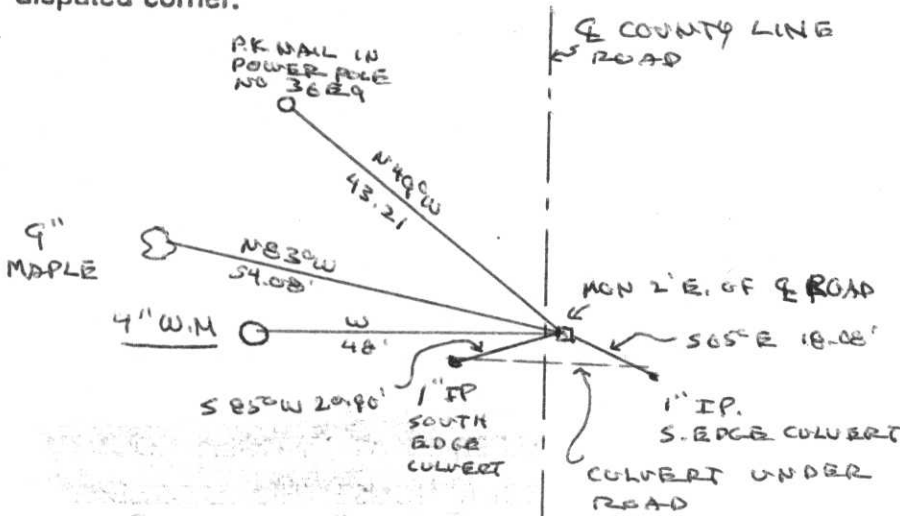 disputed corner.
℄ COUNTY LINE
ROAD
P.K NAIL IN
POWER POLE
NO 36E9
N 49° W
43.21
9"
MAPLE
N 83° W
54.08'
MON 2' E. OF ℄ ROAD
4" W.M
W
48'
S 65° E 18.08'
S 85° W 20.90'
1" IP
SOUTH
EDGE
CULVERT
1" IP.
S. EDGE CULVERT
CULVERT UNDER
ROAD